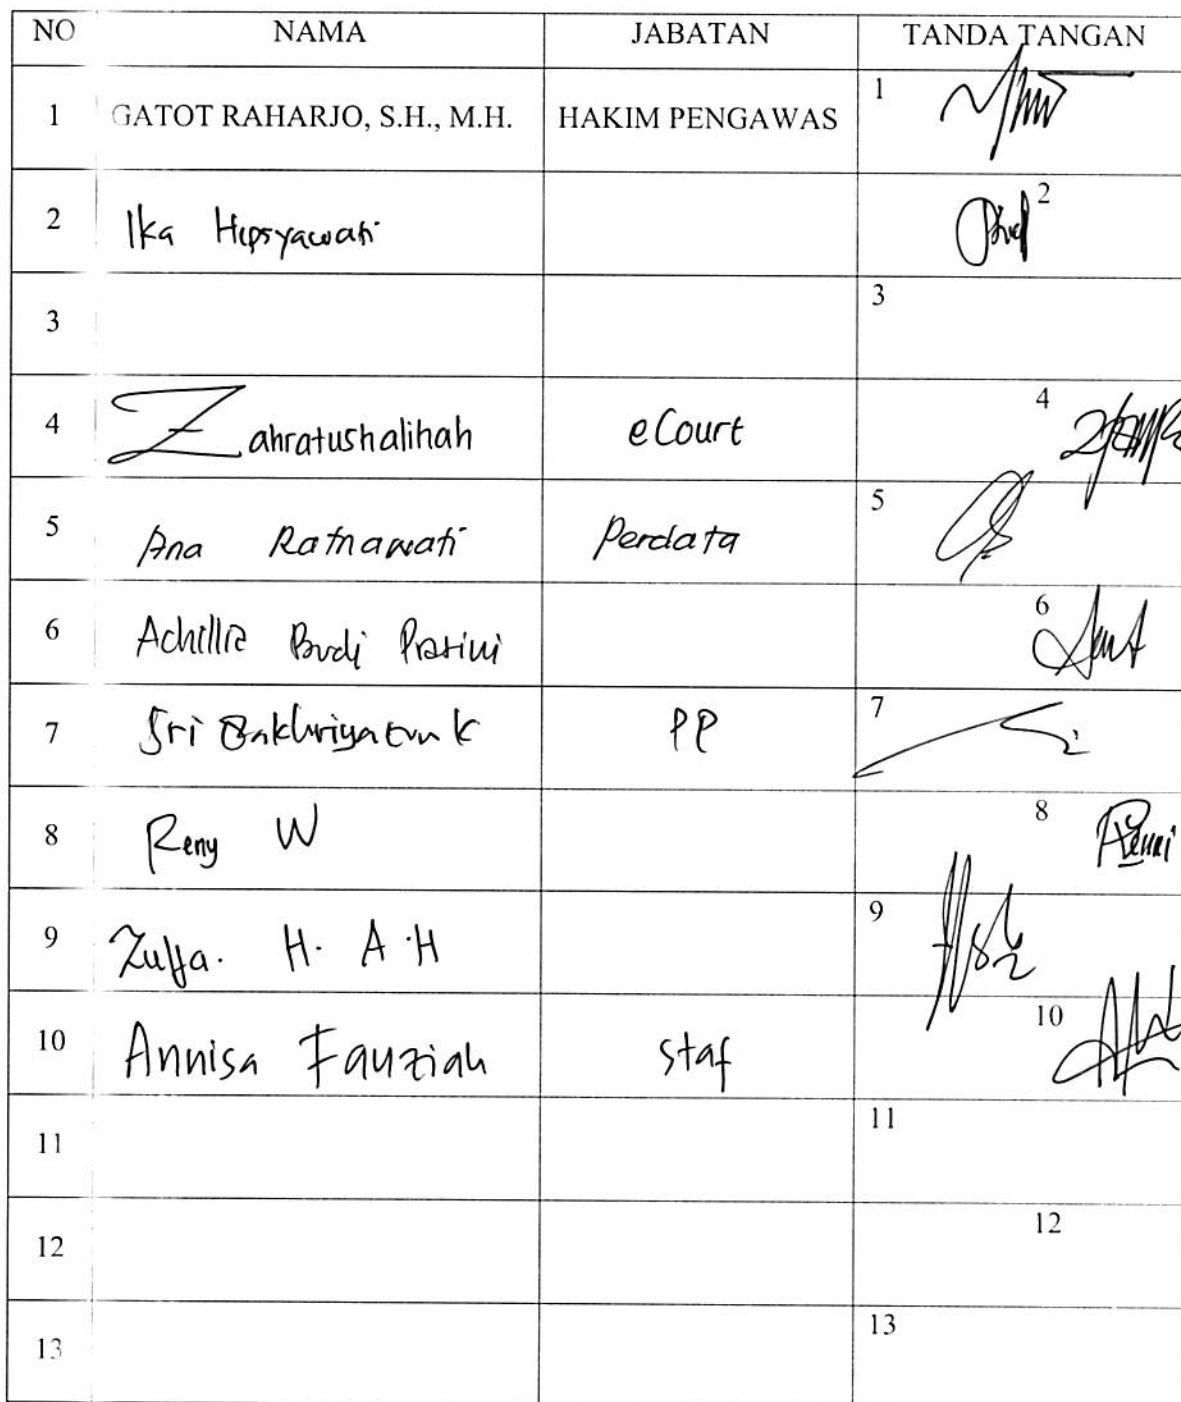 NO NAMA JABATAN TANDA TANGAN
1 GATOT RAHARJO, S.H., M.H. HAKIM PENGAWAS 1
2 Ika Hepsyawati 2
3 3
4 Zahratushalihah eCourt 4
5 Ana Ratnawati Perdata 5
6 Achillia Budi Prasini 6
7 Sri K PP 7
8 Reny W 8
9 Zulfa. H. A.H 9
10 Annisa Fauziah staf 10
11 11
12 12
13 13